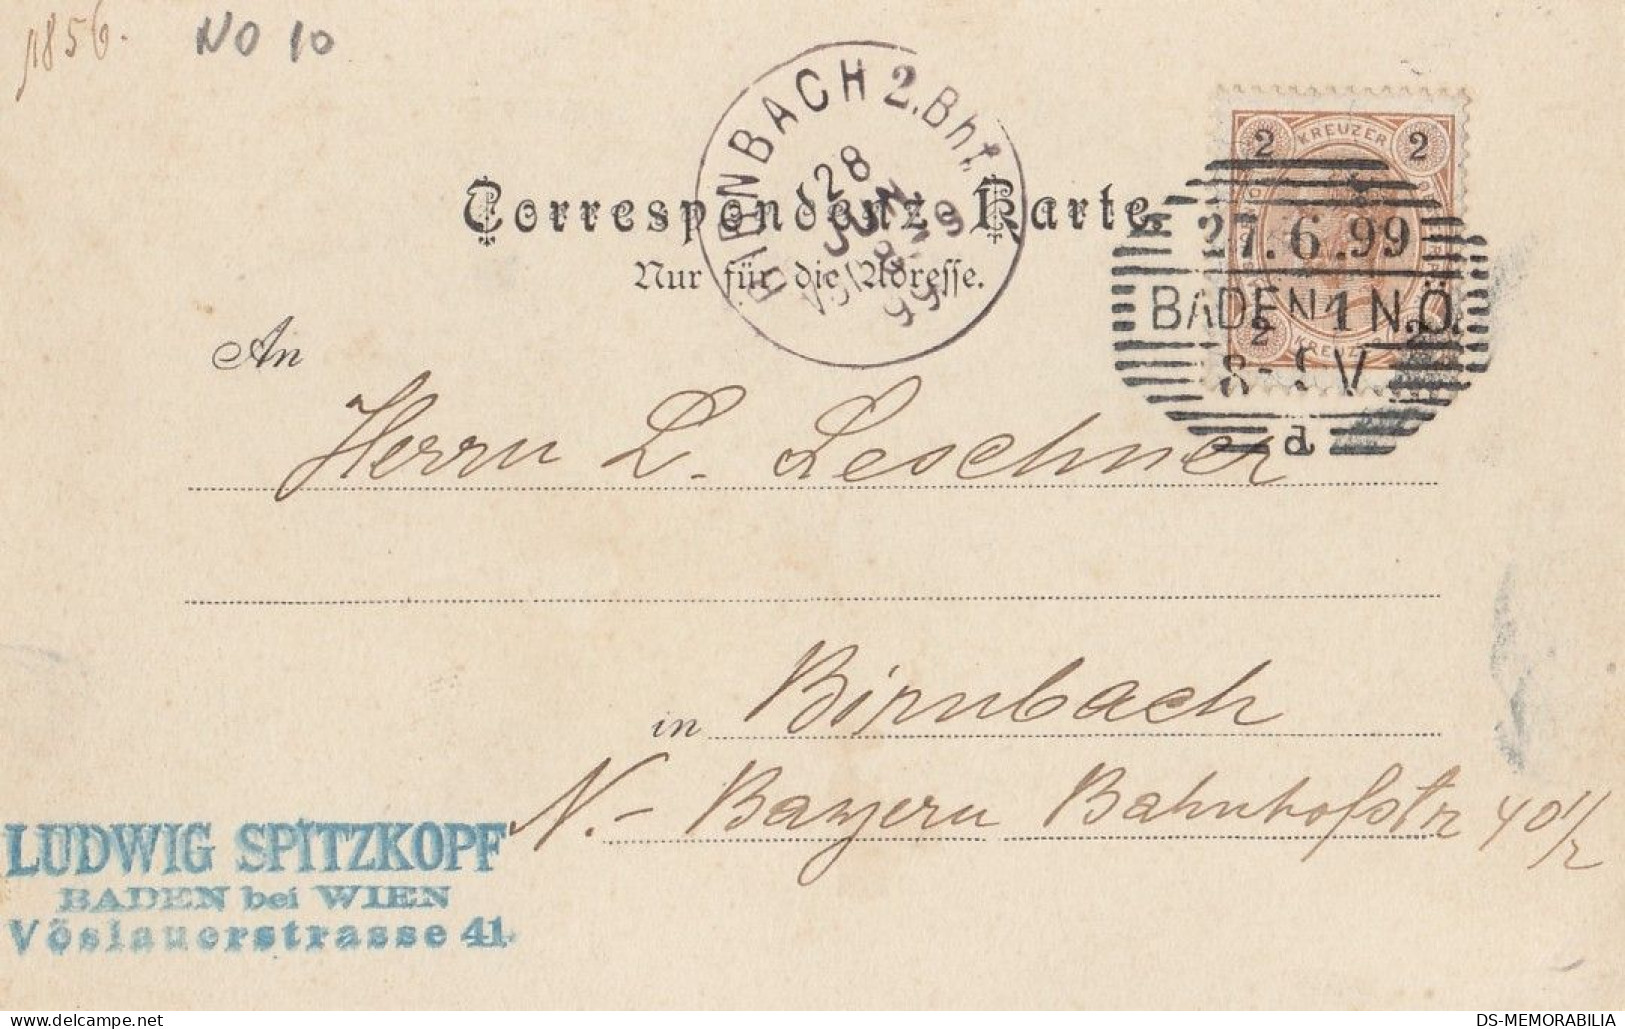 1856.
NO 10
BAIENBACH 2. Bhf.
28
JUN
99
Correspondenz-Karte.
Nur für die Adresse.
2 KREUZER 2
27.6.99
BADEN 1 N.Ö.
8-9 V
d
2 KREUZ 2
An
Herrn L. Leschner
in Birnbach
N.- Bayern Bahnhofstr 40 1/2
LUDWIG SPITZKOPF
BADEN bei WIEN
Vöslauerstrasse 41.
DS-MEMORABILIA